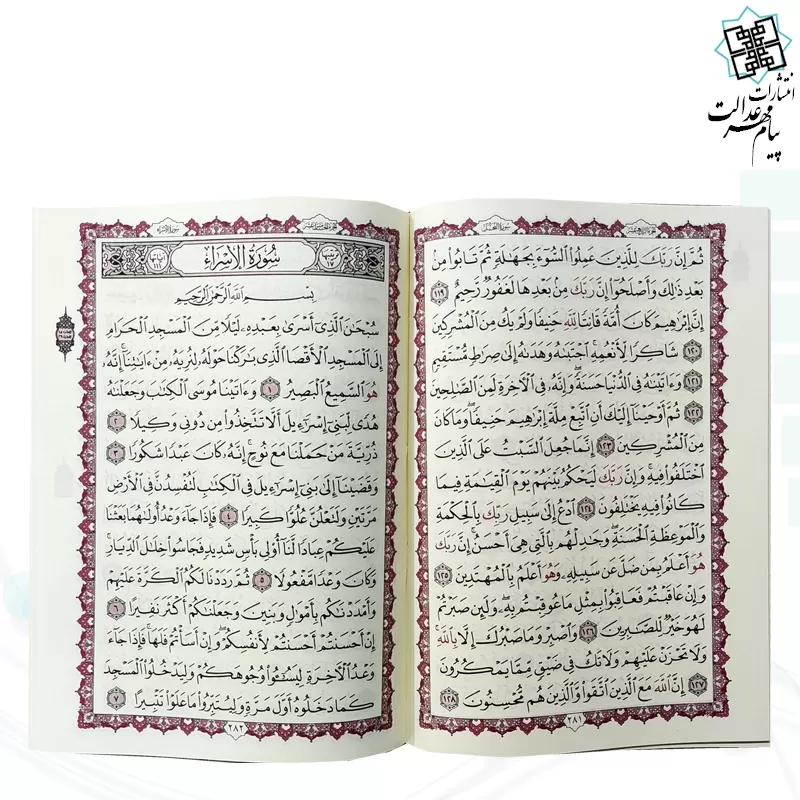 انتشارات
پیام مهر عدالت
سورة النحل
ثُمَّ إِنَّ رَبَّكَ لِلَّذِينَ عَمِلُوا۟ ٱلسُّوٓءَ بِجَهَـٰلَةٍ ثُمَّ تَابُوا۟ مِنۢ
بَعْدِ ذَٰلِكَ وَأَصْلَحُوٓا۟ إِنَّ رَبَّكَ مِنۢ بَعْدِهَا لَغَفُورٌ رَّحِيمٌ ١١٩
إِنَّ إِبْرَٰهِيمَ كَانَ أُمَّةً قَانِتًا لِّلَّهِ حَنِيفًا وَلَمْ يَكُ مِنَ ٱلْمُشْرِكِينَ
١٢٠ شَاكِرًا لِّأَنْعُمِهِ ۚ ٱجْتَبَىٰهُ وَهَدَىٰهُ إِلَىٰ صِرَٰطٍ مُّسْتَقِيمٍ
١٢١ وَءَاتَيْنَـٰهُ فِى ٱلدُّنْيَا حَسَنَةً ۖ وَإِنَّهُۥ فِى ٱلْـَٔاخِرَةِ لَمِنَ ٱلصَّـٰلِحِينَ
١٢٢ ثُمَّ أَوْحَيْنَآ إِلَيْكَ أَنِ ٱتَّبِعْ مِلَّةَ إِبْرَٰهِيمَ حَنِيفًا ۖ وَمَا كَانَ
مِنَ ٱلْمُشْرِكِينَ ١٢٣ إِنَّمَا جُعِلَ ٱلسَّبْتُ عَلَى ٱلَّذِينَ
ٱخْتَلَفُوا۟ فِيهِ ۚ وَإِنَّ رَبَّكَ لَيَحْكُمُ بَيْنَهُمْ يَوْمَ ٱلْقِيَـٰمَةِ فِيمَا
كَانُوا۟ فِيهِ يَخْتَلِفُونَ ١٢٤ ٱدْعُ إِلَىٰ سَبِيلِ رَبِّكَ بِٱلْحِكْمَةِ
وَٱلْمَوْعِظَةِ ٱلْحَسَنَةِ ۖ وَجَـٰدِلْهُم بِٱلَّتِى هِىَ أَحْسَنُ ۚ إِنَّ رَبَّكَ
هُوَ أَعْلَمُ بِمَن ضَلَّ عَن سَبِيلِهِۦ ۖ وَهُوَ أَعْلَمُ بِٱلْمُهْتَدِينَ ١٢٥
وَإِنْ عَاقَبْتُمْ فَعَاقِبُوا۟ بِمِثْلِ مَا عُوقِبْتُم بِهِۦ ۖ وَلَئِن صَبَرْتُمْ
لَهُوَ خَيْرٌ لِّلصَّـٰبِرِينَ ١٢٦ وَٱصْبِرْ وَمَا صَبْرُكَ إِلَّا بِٱللَّهِ ۚ
وَلَا تَحْزَنْ عَلَيْهِمْ وَلَا تَكُ فِى ضَيْقٍ مِّمَّا يَمْكُرُونَ
١٢٧ إِنَّ ٱللَّهَ مَعَ ٱلَّذِينَ ٱتَّقَوا۟ وَّٱلَّذِينَ هُم مُّحْسِنُونَ ١٢٨
٢٨١
سورة الإسراء
سُورَةُ الإِسْرَاءِ
بِسْمِ ٱللَّهِ ٱلرَّحْمَـٰنِ ٱلرَّحِيمِ
سُبْحَـٰنَ ٱلَّذِىٓ أَسْرَىٰ بِعَبْدِهِۦ لَيْلًا مِّنَ ٱلْمَسْجِدِ ٱلْحَرَامِ
إِلَى ٱلْمَسْجِدِ ٱلْأَقْصَا ٱلَّذِى بَـٰرَكْنَا حَوْلَهُۥ لِنُرِيَهُۥ مِنْ ءَايَـٰتِنَآ ۚ إِنَّهُۥ
هُوَ ٱلسَّمِيعُ ٱلْبَصِيرُ ١ وَءَاتَيْنَا مُوسَى ٱلْكِتَـٰبَ وَجَعَلْنَـٰهُ
هُدًى لِّبَنِىٓ إِسْرَٰٓءِيلَ أَلَّا تَتَّخِذُوا۟ مِن دُونِى وَكِيلًا ٢
ذُرِّيَّةَ مَنْ حَمَلْنَا مَعَ نُوحٍ ۚ إِنَّهُۥ كَانَ عَبْدًا شَكُورًا ٣
وَقَضَيْنَآ إِلَىٰ بَنِىٓ إِسْرَٰٓءِيلَ فِى ٱلْكِتَـٰبِ لَتُفْسِدُنَّ فِى ٱلْأَرْضِ
مَرَّتَيْنِ وَلَتَعْلُنَّ عُلُوًّا كَبِيرًا ٤ فَإِذَا جَآءَ وَعْدُ أُولَىٰهُمَا بَعَثْنَا
عَلَيْكُمْ عِبَادًا لَّنَآ أُو۟لِى بَأْسٍ شَدِيدٍ فَجَاسُوا۟ خِلَـٰلَ ٱلدِّيَارِ ۚ
وَكَانَ وَعْدًا مَّفْعُولًا ٥ ثُمَّ رَدَدْنَا لَكُمُ ٱلْكَرَّةَ عَلَيْهِمْ
وَأَمْدَدْنَـٰكُم بِأَمْوَٰلٍ وَبَنِينَ وَجَعَلْنَـٰكُمْ أَكْثَرَ نَفِيرًا ٦
إِنْ أَحْسَنتُمْ أَحْسَنتُمْ لِأَنفُسِكُمْ ۖ وَإِنْ أَسَأْتُمْ فَلَهَا ۚ فَإِذَا جَآءَ
وَعْدُ ٱلْـَٔاخِرَةِ لِيَسُـۥٓـُٔوا۟ وُجُوهَكُمْ وَلِيَدْخُلُوا۟ ٱلْمَسْجِدَ
كَمَا دَخَلُوهُ أَوَّلَ مَرَّةٍ وَلِيُتَبِّرُوا۟ مَا عَلَوْا۟ تَتْبِيرًا ٧
٢٨٢